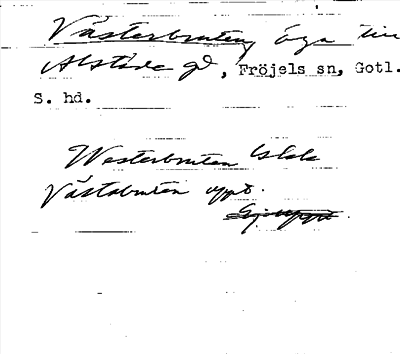 Västerbruten, äga till
Alstäde gd, Fröjels sn, Gotl.
S. hd.
Westerbruten
Västerbruten uppt.